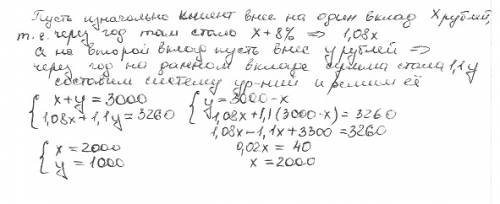 Пусть изначально клиент внес на один вклад X рублей,
т.е. через год там стало X+8% ⇒ 1,08x
А на второй вклад пусть внес y рублей ⇒
через год на данном вкладе сумма стала 1,1y
составим систему ур-ний и решим её
{ x+y=3000 { y=3000-x
1,08x+1,1y=3260 1,08x+1,1(3000-x)=3260
1,08x-1,1x+3300=3260
{ x=2000 0,02x=40
y=1000 x=2000